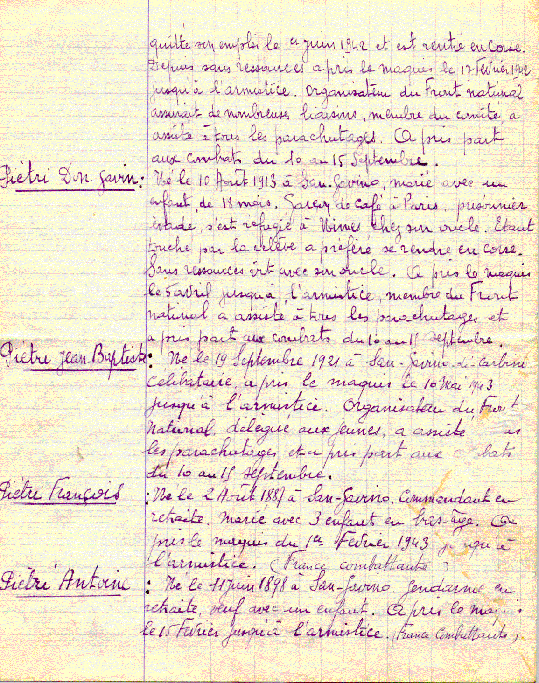 quitté son emploi le 1er juin 1942 et est rentré en Corse.
Depuis sans ressources a pris le maquis le 17 Février 1942
jusqu'à l'armistice. Organisateur du Front national
assurait de nombreuses liaisons, membre du comité a
assisté à tous les parachutages. A pris part
aux combats du 10 au 15 Septembre.
Piétri Don Gavin: Né le 10 Août 1913 à San-Gavino, marié avec un
enfant de 18 mois. Garçon de café à Paris, prisonnier
évadé, s'est réfugié à Nimes chez son oncle. Etant
touché par la relève a préféré se rendre en Corse.
Sans ressources vit avec son oncle. A pris le maquis
le 5 avril jusqu'à l'armistice, membre du Front
national a assisté à tous les parachutages et
a pris part aux combats du 10 au 15 septembre.
Piétri Jean Baptiste: Né le 19 Septembre 1921 à San-Gavino-de-Carbini
Célibataire, a pris le maquis le 10 Mai 1943
jusqu'à l'armistice. Organisateur du Front
National, délégué aux jeunes, a assisté
les parachutages et a pris part aux
du 10 au 15 septembre.
Piétri François : Né le 2 Août 1887 à San-Gavino. Commandant en
retraite. Marié avec 3 enfant en bas-âge. A
pris le maquis du 1er Février 1943 jusqu'à
l'armistice. (France combattante)
Piétri Antoine : Né le 11 juin 1898 à San-Gavino Gendarme en
retraite, veuf avec un enfant. A pris le
le 15 Fevrier jusqu'à l'armistice. (France Combattante)